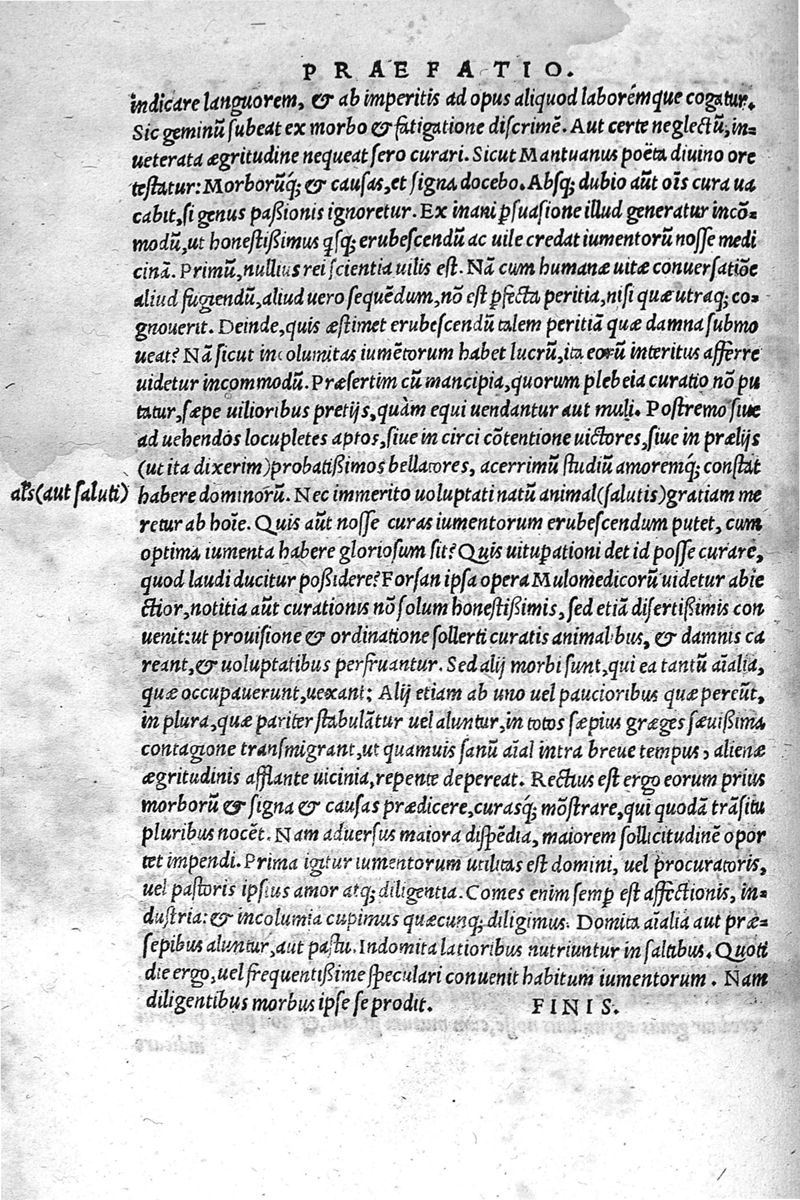 PRAEFATIO.
indicare languorem, & ab imperitis ad opus aliquod laborémque cogatur.
Sic geminũ subeat ex morbo & fatigatione discrimẽ. Aut certe neglectũ, in=
ueterata ægritudine nequeat sero curari. Sicut Mantuanus poëta diuino ore
testatur: Morborũq; & causas, et signa docebo. Absq; dubio aũt oĩs cura ua
cabit, si genus passionis ignoretur. Ex inani ꝑsuasione illud generatur incõ=
modũ, ut honestissimus qsq; erubescendũ ac uile credat iumentorũ nosse medi
cinã. Primũ, nullius rei scientia uilis est. Nã cum humanæ uitæ conuersatiõe
aliud fugiendũ, aliud uero sequẽdum, nõ est ꝑfecta peritia, nisi quæ utraq; co=
gnouerit. Deinde, quis æstimet erubescendũ talem peritiã quæ damna submo
ueat? Nã sicut incolumitas iumẽtorum habet lucrũ, ita eorũ interitus afferre
uidetur incommodũ. Præsertim cũ mancipia, quorum plebeia curatio nõ pu
tatur, sæpe uilioribus pretijs, quàm equi uendantur aut muli. Postremo siue
ad uehendos locupletes aptos, siue in circi cõtentione uictores, siue in prælijs
(ut ita dixerim) probatissimos bellatores, acerrimũ studiũ amoremq́; constat
aĺs (aut saluti)
habere dominorũ. Nec immerito uoluptati natũ animal (salutis) gratiam me
retur ab hoĩe. Quis aũt nosse curas iumentorum erubescendum putet, cum
optima iumenta habere gloriosum sit? Quis uituꝑationi det id posse curare,
quod laudi ducitur possidere? Forsan ipsa opera Mulomedicorũ uidetur abie
ctior, notitia aũt curationis nõ solum honestissimis, sed etiã disertissimis con
uenit: ut prouisione & ordinatione sollerti curatis animalibus, & damnis ca
reant, & uoluptatibus perfruantur. Sed alij morbi sunt, qui ea tantũ aĩalia,
quæ occupauerunt, uexant: Alij etiam ab uno uel paucioribus quæ pereũt,
in plura, quæ pariter stabulãtur uel aluntur, in totos sæpius græges sæuissima
contagione transmigrant, ut quamuis sanũ aĩal intra breue tempus, alienæ
ægritudinis afflante uicinia, repente depereat. Rectius est ergo eorum prius
morborũ & signa & causas prædicere, curasq́; mõstrare, qui quodã trãsitu
pluribus nocẽt. Nam aduersus maiora dispẽdia, maiorem sollicitudinẽ opor
tet impendi. Prima igitur iumentorum utilitas est domini, uel procuratoris,
uel pastoris ipsius amor atq; diligentia. Comes enim semꝑ est affectionis, in=
dustria: & incolumia cupimus quæcunq; diligimus. Domita aĩalia aut præ=
sepibus aluntur, aut pastu. Indomita latioribus nutriuntur in saltibus. Quoti
die ergo, uel frequentissime speculari conuenit habitum iumentorum. Nam
diligentibus morbus ipse se prodit. FINIS.